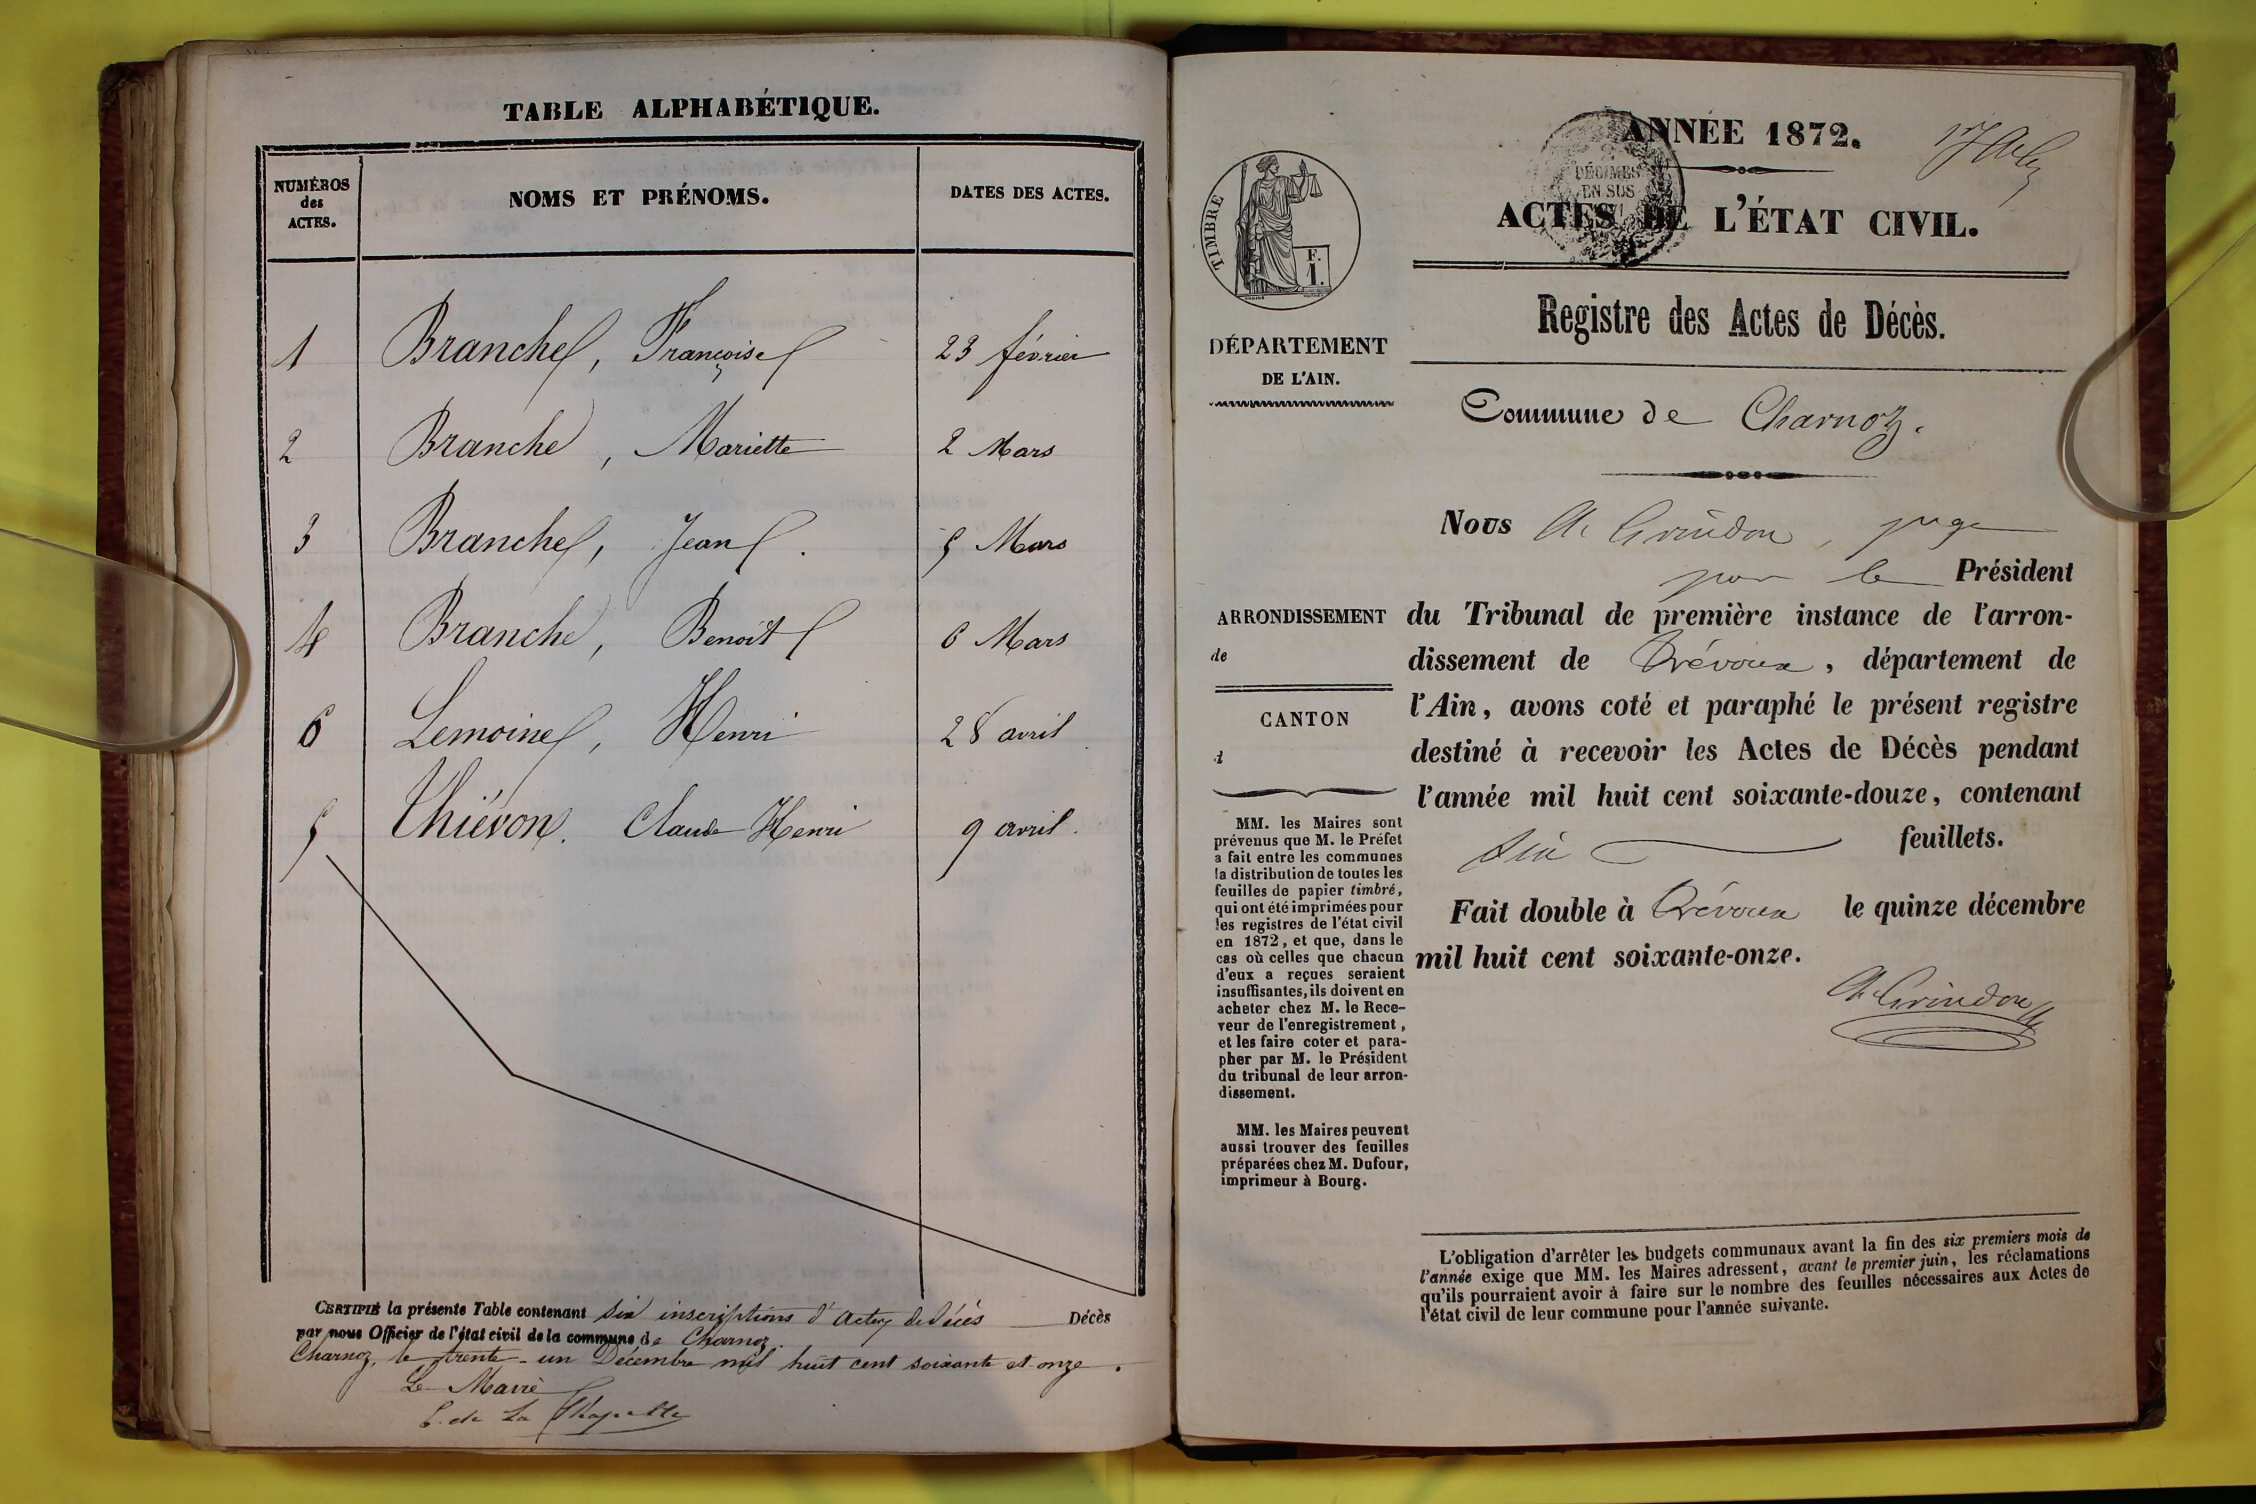 TABLE ALPHABÉTIQUE.
NUMÉROS
des
ACTES.
NOMS ET PRÉNOMS.
DATES DES ACTES.
1 Branche, Françoise 23 février
2 Branche, Mariette 2 Mars
3 Branche, Jean. 5 Mars
4 Branche, Benoit 6 Mars
6 Lemoine, Henri 28 avril
5 Thiévon. Claude Henri 9 avril.
CERTIFIÉ la présente Table contenant six inscriptions d'actes de décès Décès
par nous Officier de l'état civil de la commune de Charnoz.
Charnoz, le trente-un Décembre mil huit cent soixante et onze.
Le Maire
de La Chapelle
ANNÉE 1872.
2
DÉCIMES
EN SUS
ACTES DE L'ÉTAT CIVIL.
TIMBRE
F.
1.
Registre des Actes de Décès.
DÉPARTEMENT
DE L'AIN.
Commune de Charnoz.
Nous Grindon, juge
pour le Président
ARRONDISSEMENT
de
du Tribunal de première instance de l'arron-
dissement de Trévoux, département de
l'Ain, avons coté et paraphé le présent registre
destiné à recevoir les Actes de Décès pendant
l'année mil huit cent soixante-douze, contenant
six feuillets.
Fait double à Trévoux le quinze décembre
mil huit cent soixante-onze.
Grindon
CANTON
d
MM. les Maires sont
prévenus que M. le Préfet
a fait entre les communes
la distribution de toutes les
feuilles de papier timbré,
qui ont été imprimées pour
les registres de l'état civil
en 1872, et que, dans le
cas où celles que chacun
d'eux a reçues seraient
insuffisantes, ils doivent en
acheter chez M. le Rece-
veur de l'enregistrement,
et les faire coter et para-
pher par M. le Président
du tribunal de leur arron-
dissement.
MM. les Maires peuvent
aussi trouver des feuilles
préparées chez M. Dufour,
imprimeur à Bourg.
L'obligation d'arrêter les budgets communaux avant la fin des six premiers mois de
l'année exige que MM. les Maires adressent, avant le premier juin, les réclamations
qu'ils pourraient avoir à faire sur le nombre des feuilles nécessaires aux Actes de
l'état civil de leur commune pour l'année suivante.